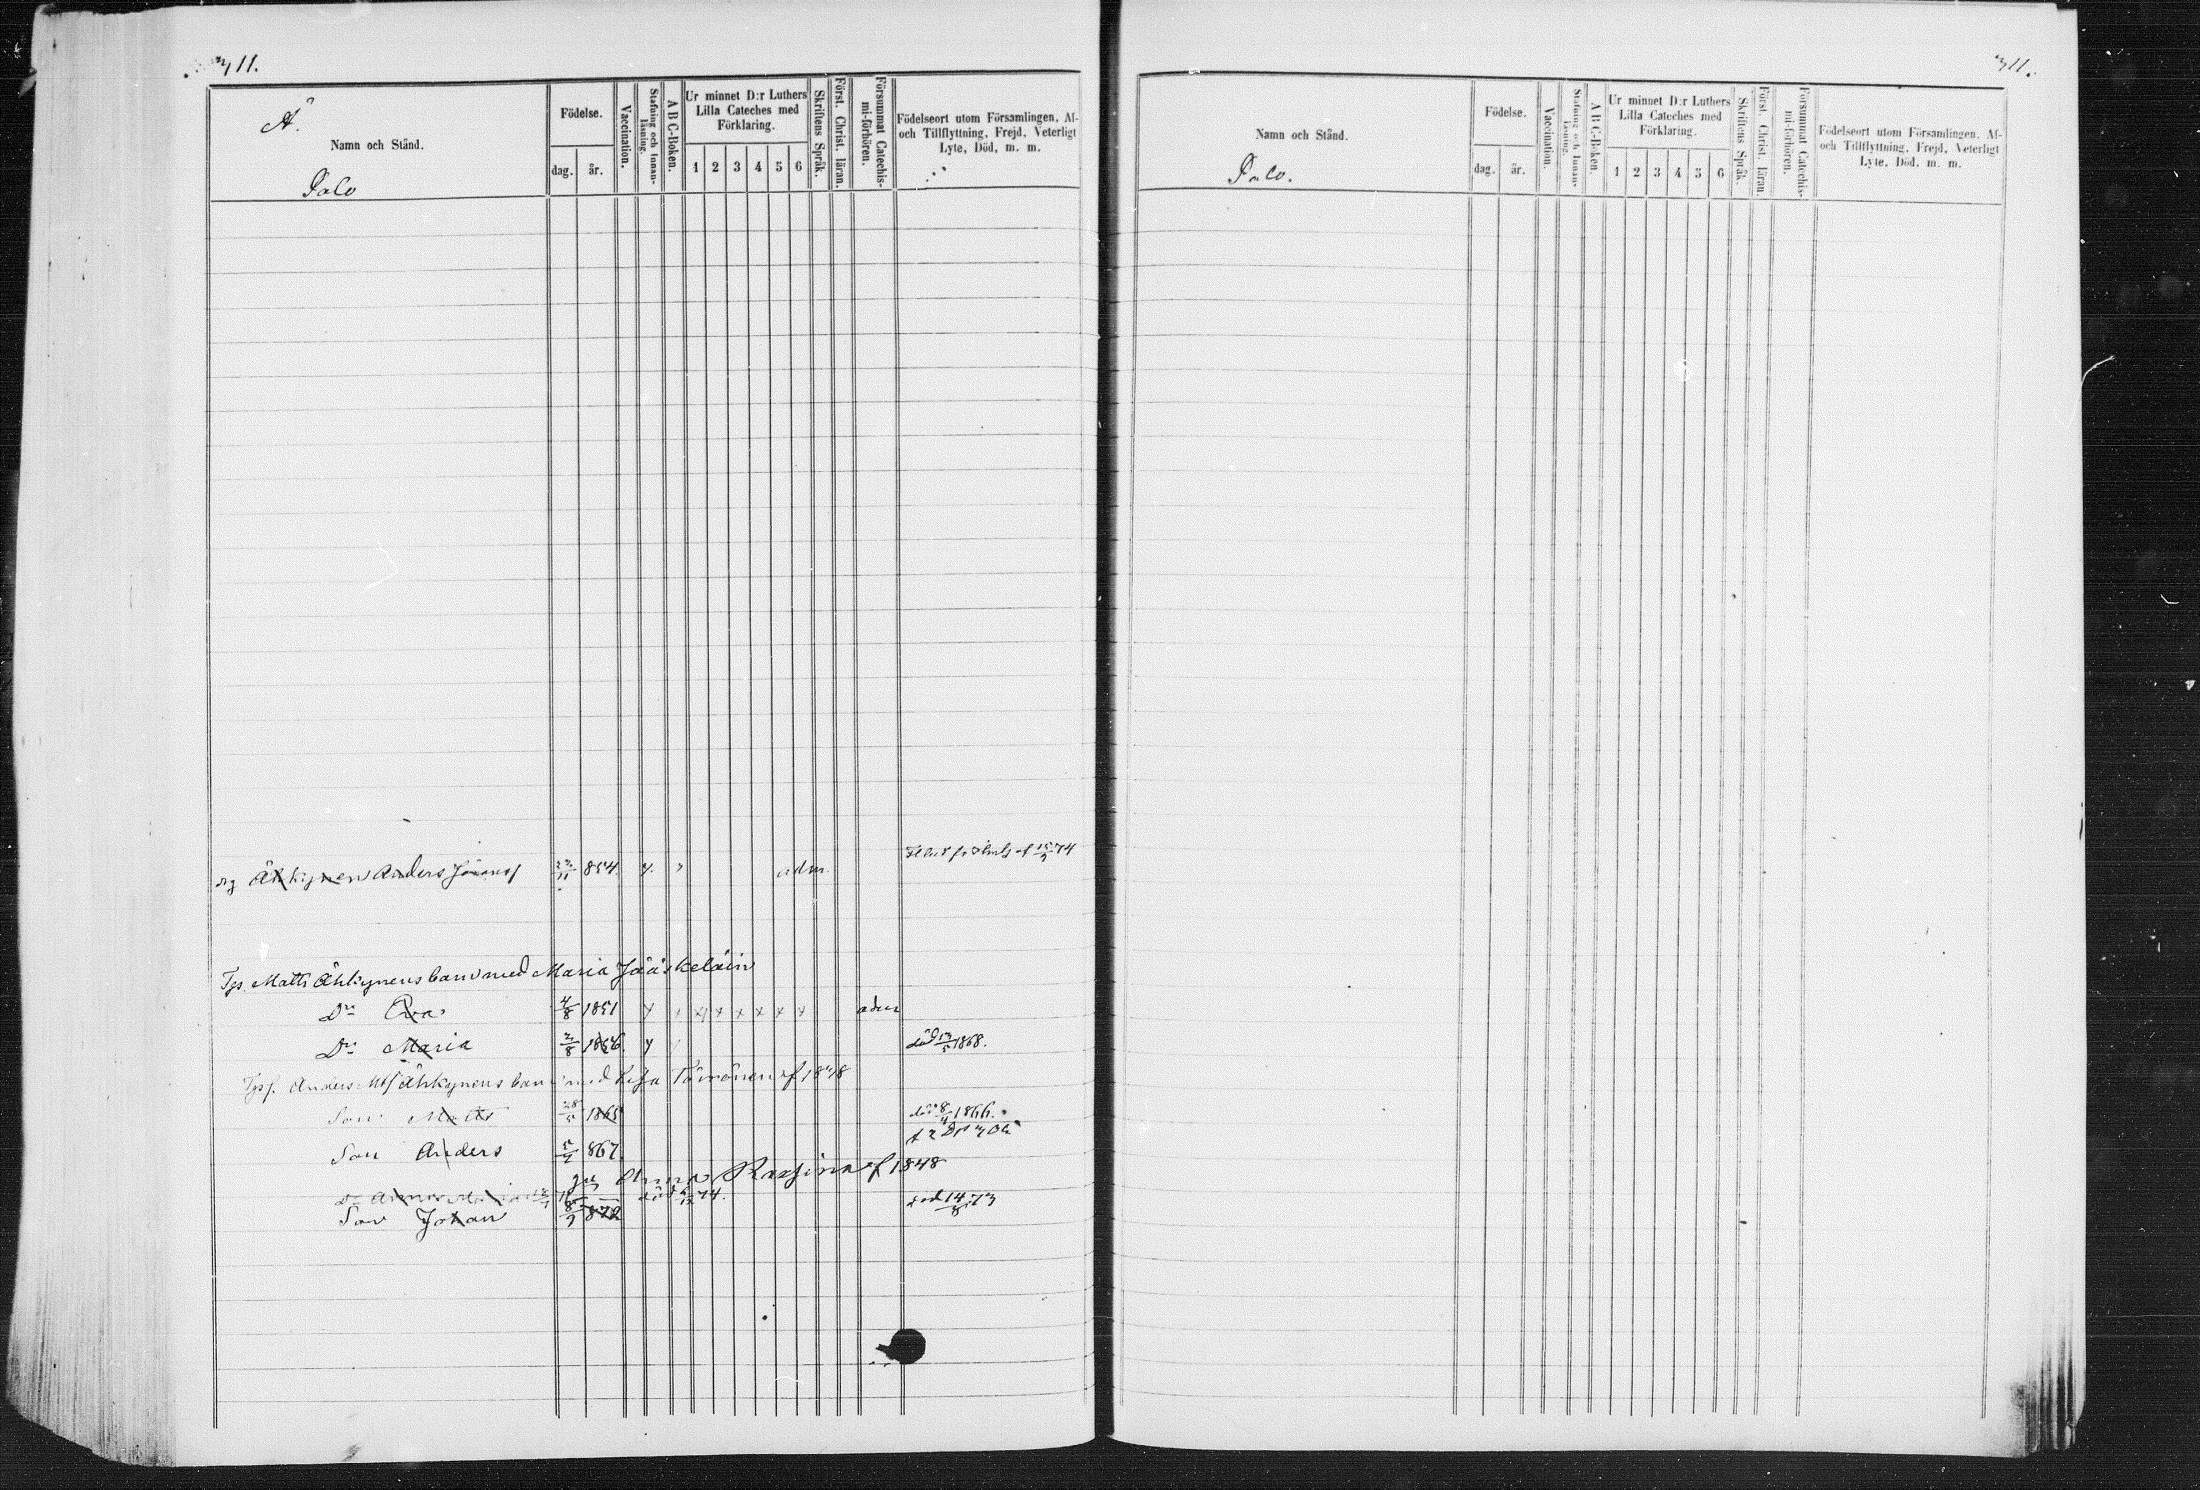 311.
Å.
Namn och Stånd.
Palo
Födelse.
dag. år.
Vaccination.
Stafning och Innanläsning.
A B C-Boken.
Ur minnet D:r Luthers
Lilla Cateches med
Förklaring.
1 2 3 4 5 6
Skriftens Språk.
Först. Christ. läran.
Försummat Catechismi-förhören.
Födelseort utom Församlingen, Af-
och Tillflyttning, Frejd, Veterligt
Lyte, Död, m. m.
Ähkynen Anders 854. adm. 74
Matts Ähkynens barn med Maria Jääskeläin
Dr Eva 4/8 1851 x x x x x x adm
Dr Maria 3/8 1856. död 1868.
Anders Ähkynens barn med Lisa f 1848
Son Matts 1865 död 8/4 1866.
Son Anders 867.
Anna f 1848
död 74.
Son Johan 8/7 872 död 14/8 73
311.
Namn och Stånd.
Palo.
Födelse.
dag. år.
Vaccination.
Stafning och Innanläsning.
A B C-Boken.
Ur minnet D:r Luthers
Lilla Cateches med
Förklaring.
1 2 3 4 5 6
Skriftens Språk.
Först. Christ. läran.
Försummat Catechismi-förhören.
Födelseort utom Församlingen, Af-
och Tillflyttning, Frejd, Veterligt
Lyte, Död, m. m.